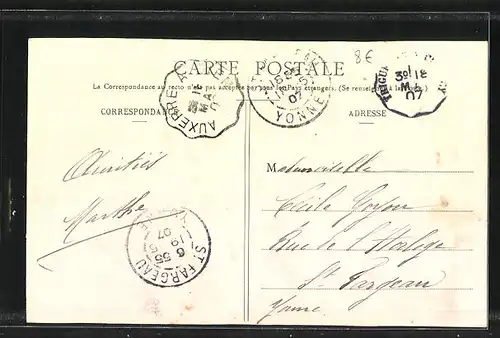 8€
CARTE POSTALE
La Correspondance au recto n'est pas acceptée par tous les Pays étrangers. (Se renseigner à la Poste).
CORRESPONDANCE
ADRESSE
AUXERRE A
YONNE
07
30 18
07
Amitiés
Marthe
Mademoiselle
Cécile
Rue de l'Horloge
St Fargeau
Yonne
ST FARGEAU
6 55
19 5
07